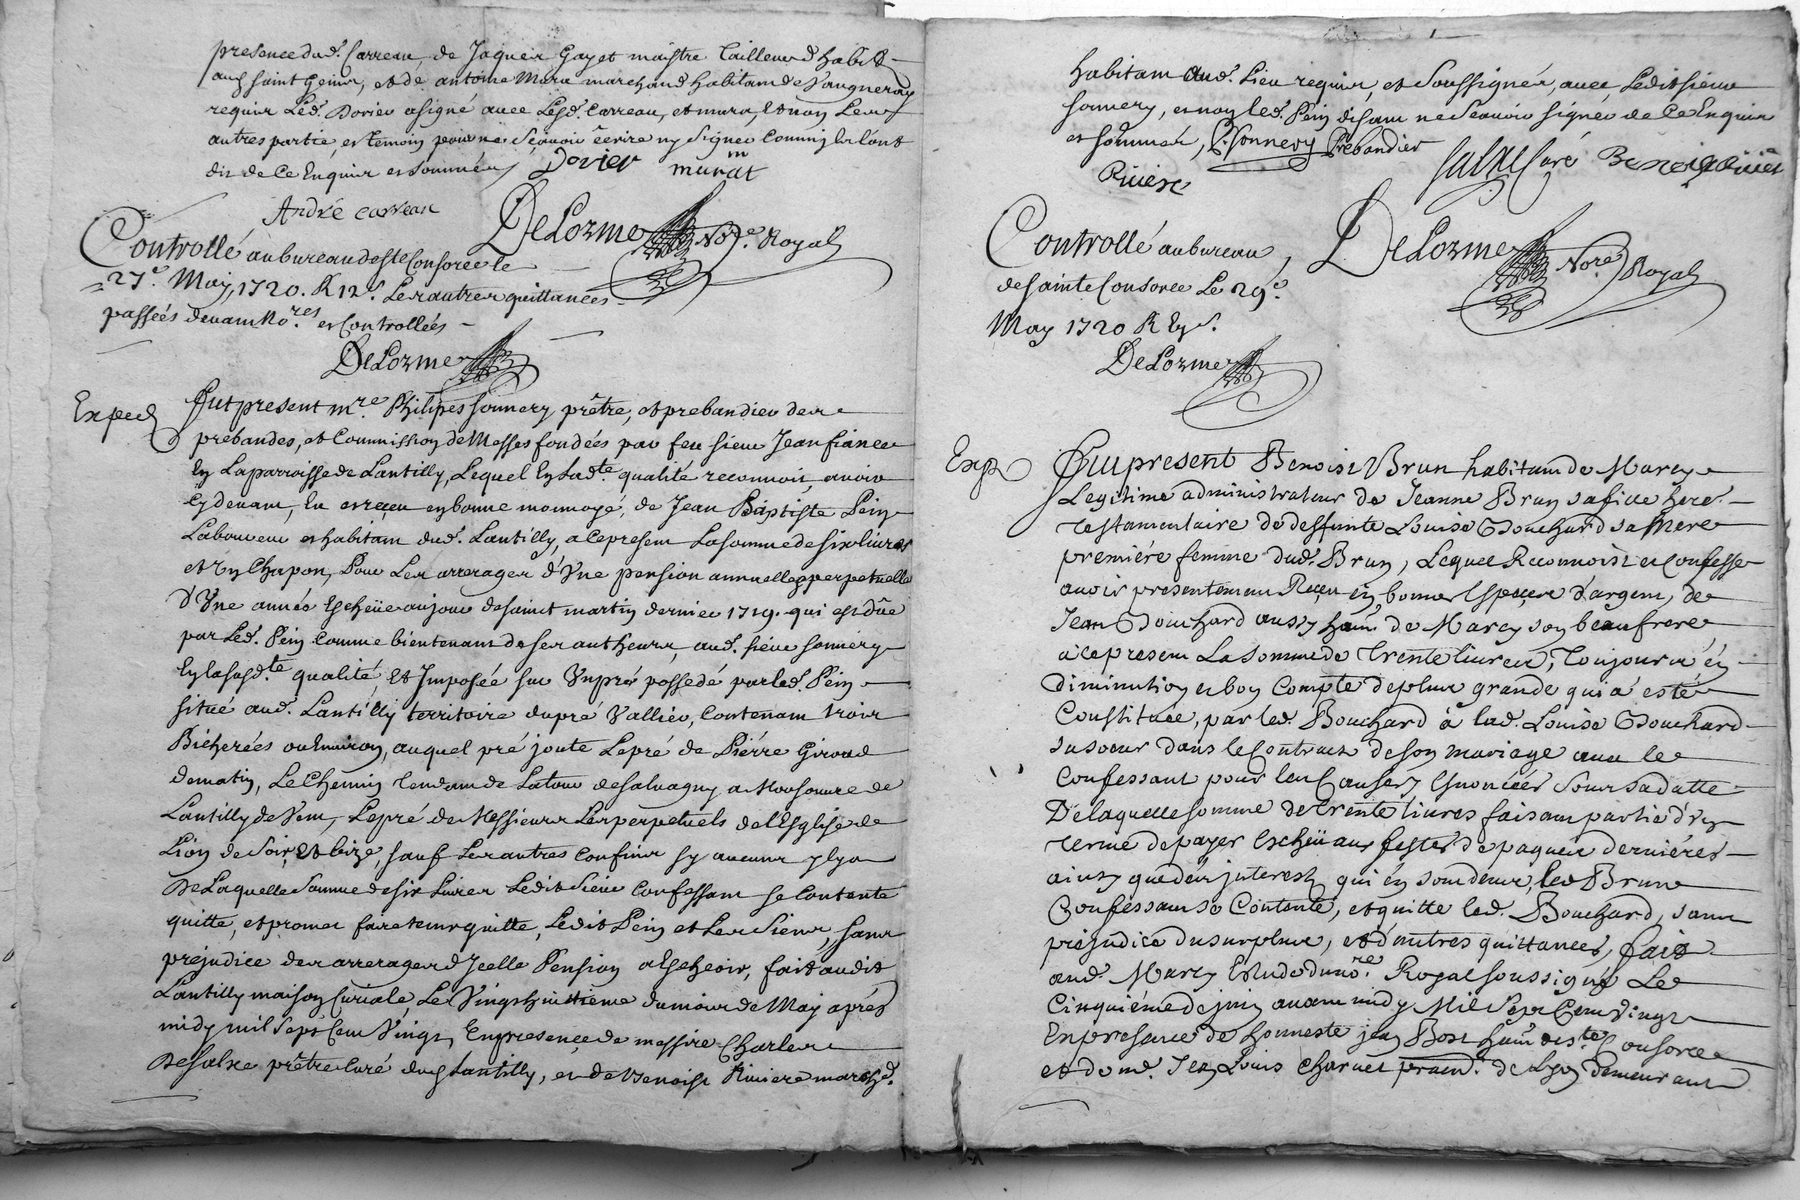 presence dud. Carreau de Jaques Gayet maistre Tailleur d'habits
aud. saint Genis, et de antoine Mura marchand habitant de Vaugneray
requis Led. Dovier a signé avec Lesd. Carreau, et mura, et non Les
autres partie, et temoin pour ne sçavoir écrire ny signer Comm'ils l'ont
dit de Ce Enquis et sommés Dovier murat
André Carreau
DeLorme Nore. Royal
Controllé au bureau de ste Consorce le
27e. May, 1720. R 12s. Les autres quittances
passées devant No.res et Controllées
DeLorme
Exped
fut present mre. Philipes sonnery prêtre, et prebandier des
prebandes, et Commission de Messes fondées par feu sieur Jean fiance
En La parroisse de Lantilly, Lequel En Lad.te qualité reconnoit, avoir
Cy devant, Eu et reçeu en bonne monnoyé, de Jean Baptiste Pein
Laboureur et habitant dud. Lantilly, a Ce present La somme de six livres
et un Chapon, Pour Les arrerages d'Une pension annuelle et perpetuelle
d'Une année Escheüe au jour de saint martin dernier 1719. qui est dûe
par Led. Pein Comme bientenant de ses autheurs, aud. sieur sonnery
En lasusd.te qualité, Et Imposée sur Un pré possedé par led. Pein
situé aud. Lantilly territoire du pré Vallier, Contenant trois
Bicherées ou Environ, auquel pré joute Le pré de Piérre Giroud
de matin, Le Chemin Tendant de La tour de salvagny a
Lantilly de Vent, Le pré de Messieurs Les perpetuels de l'Esglise de
Lion de Soir, et bize, sauf Les autres Confins sy aucuns y Lya
De Laquelle Somme de six Livres Ledit Sieur Confessant se Contente
quitte, et promet faire tenir quitte, Ledit Pein et Les Siens, sans
préjudice des arrerages d'Icelle Pension a Escheoir, fait audit
Lantilly maison Curiale, Le Vingt huitième du mois de May aprés
midy mil sept Cent Vingt, En presence de messire Charles
DeSalxe prêtre Curé dud. Lantilly, et de Benoist Riviere march.d
habitant aud. Lieu requis, et soussignés, avec Ledit sieur
sonnery, et non led. Pein disant ne Sçavoir signer de Ce Enquis
et sommé, P. Sonnery Prebandier
Salxe Curé Benoist Riviere
Riviere
DeLorme Nore. Royal
Controllé au bureau
de sainte Consorce Le 29e.
May 1720 R
DeLorme
Exp
fut present Benoist Brun habitant de Marcy
Legitime administrateur de Jeanne Brun sa fille here.
testamentaire de deffunte Louise Bouchard sa Mere
premiére femme dud. Brun, Lequel Reconnoist et Confesse
avoir presentement Reçeu En bonnes Especes d'argent, de
Jean Bouchard aussy hant. de Marcy son beaufrere
a ce present La somme de trente livres, Toujours en
diminution et bon Compte de plus grande qui a esté
Constituée, par led. Bouchard à lad. Louise Bouchard
sa soeur dans le Contract de son mariage avec le
Confessant pour les Causes y Enoncées sous sa datte
De laquelle somme de trente livres faisant partie d'un
terme de payer Escheü aux festes de paques derniéres
ainsy que des interest qui en sont deus, led Brun
Confessant se Contente, et quitte led. Bouchard, sans
préjudice du surplus, et d'autres quittances, fait
aud. Marcy Etude du nore. Royal soussigné Le
Cinquiéme de juin avant midy Mil sept Cent Vingt
En presence de honneste jean Bost hant de ste Consorce
et de md. Jean Louis Charvet pratd. de Lyon demeurant